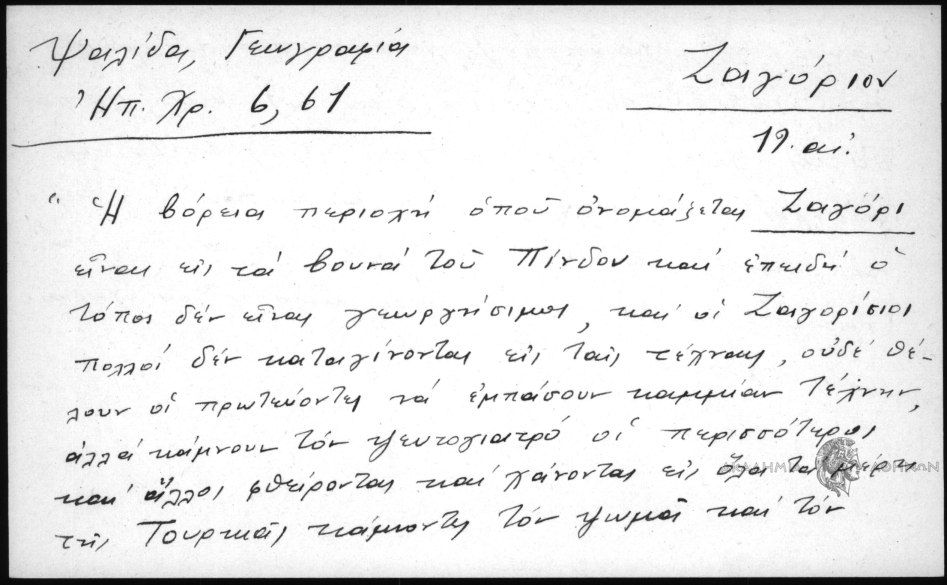 Ψαλίδα, Γεωγραφία
Ζαγόριον
Ἠπ. Χρ. 6, 61
19. αἰ.
"Ἡ βόρεια περιοχή ὁποῦ ὀνομάζεται Ζαγόρι
εἶναι εἰς τά βουνά τοῦ Πίνδου καί ἐπειδή ὁ
τόπος δέν εἶναι γεωργήσιμος, καί οἱ Ζαγορίσιοι
πολλοί δέν καταγίνονται εἰς ταῖς τέχναις, οὐδέ θέ-
λουν οἱ πρωτεύοντες νά ἐμπάσουν καμμίαν τέχνην,
ἀλλά κάμνουν τόν ψευτογιατρό οἱ περισσότεροι
καί ἄλλοι φθείρονται καί χάνονται εἰς ὅλα τα μέρη
τῆς Τουρκιᾶς κάμνοντες τόν ψωμᾶ καί τόν
ΑΚΑΔΗΜΙΑ ΑΘΗΝΩΝ